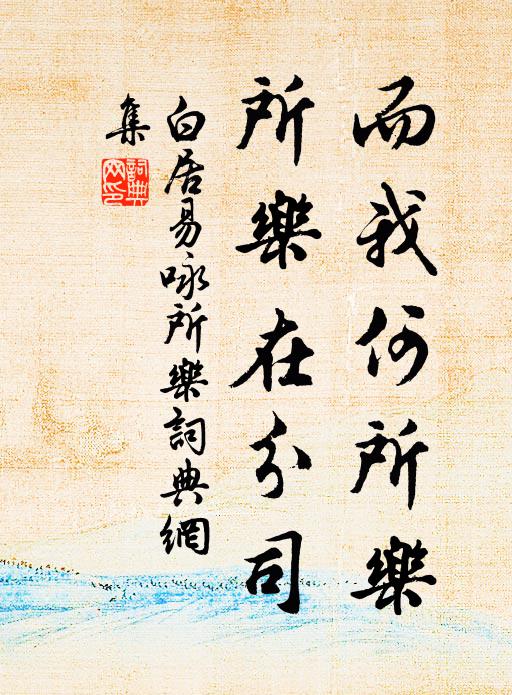 而我何所樂
所樂在分司
白居易咏所樂詞典網
集
詞典
網印